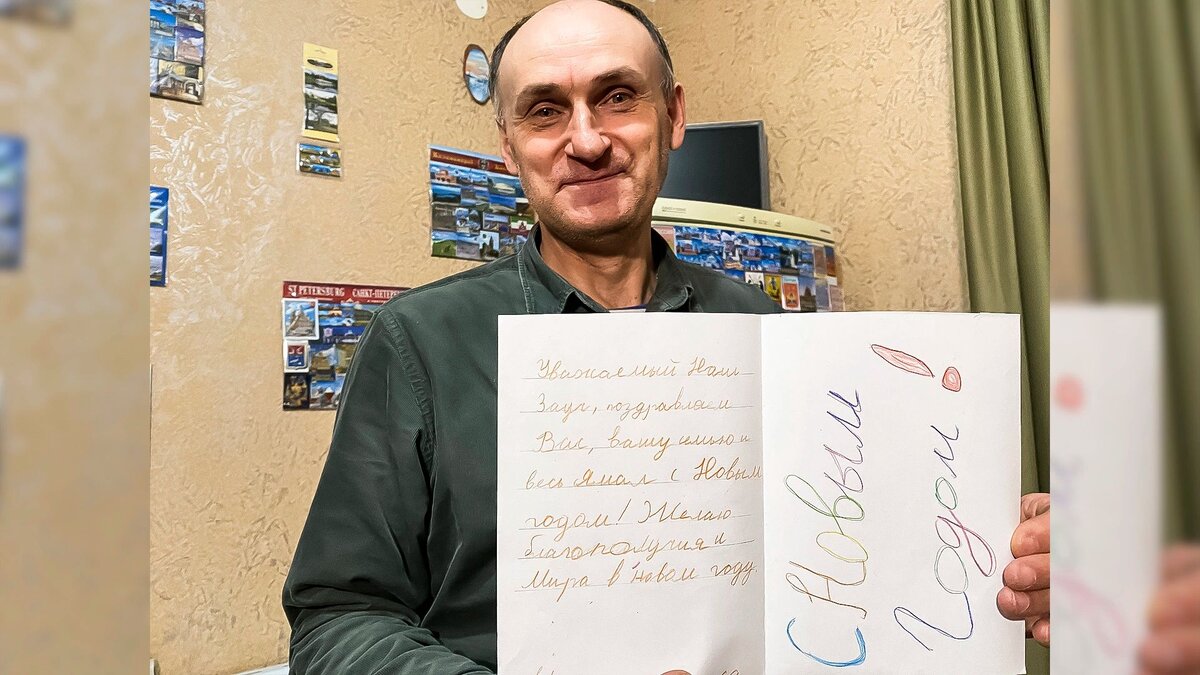 ST PETERSBURG САНКТ-ПЕТЕР
Уважаемый Наш
Заур, поздравляем
Вас, вашу семью и
весь Ямал с Новым
годом! Желаю
благополучия и
Мира в новом году.
С Новым
Годом!